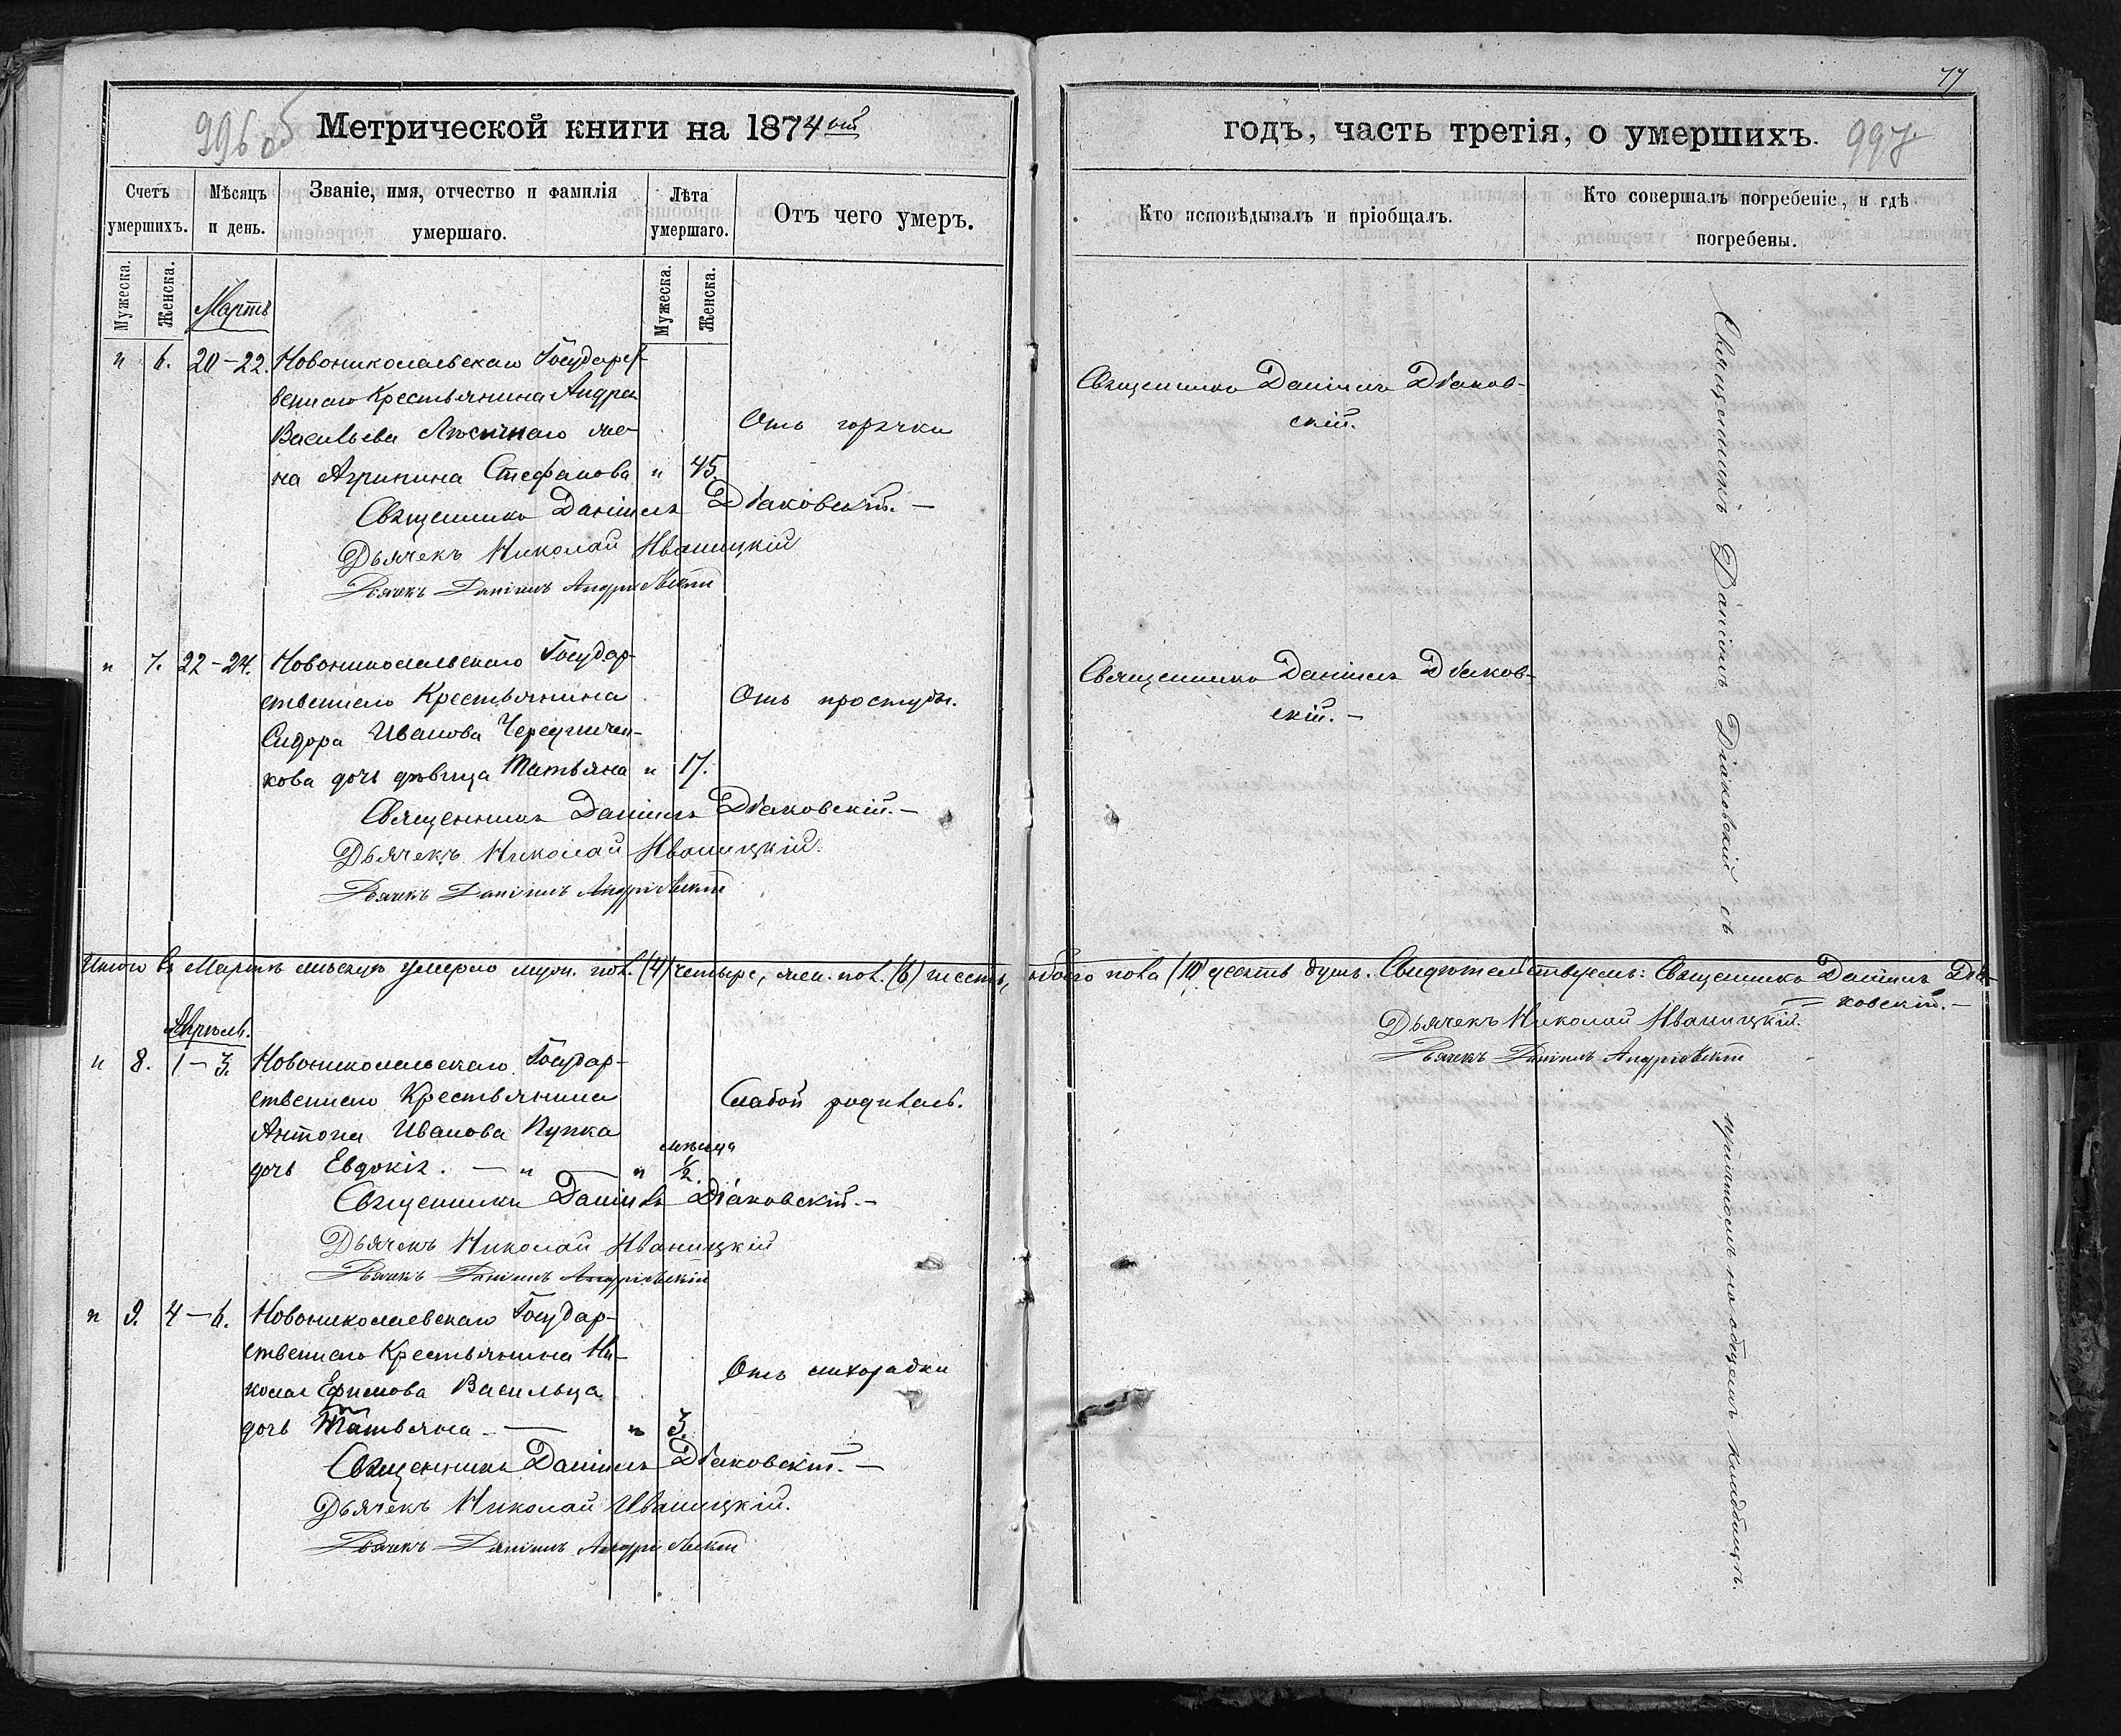 996 об
Метрической книги на 1874ый
Счетъ умершихъ.
Мѣсяцъ и день.
Званіе, имя, отчество и фамилія умершаго.
Лѣта умершаго.
Отъ чего умеръ.
Мужеска.
Женска.
Мужеска.
Женска.
Мартъ
" 6. 20-22. Новониколаевскаго Государст-
веннаго Крестьянина Андрея
Васильева Лясичнаго же-
на Агрипина Стефанова " 45.
Отъ горячки
Священникъ Даніилъ Діаковскій.-
Дьячекъ Николай Иваницкій
Дьячекъ Даніилъ Андріевскій
" 7. 22-24. Новониколаевскаго Государ-
ственнаго Крестьянина
Сидора Иванова Чередничен-
кова дочь дѣвица Татьяна " 17.
Отъ простуды.
Священникъ Даніилъ Діаковскій.-
Дьячекъ Николай Иваницкій.
Дьячекъ Даніилъ Андріевскій
Итого въ Мартѣ мѣсяцѣ умерло муж. пол. (4) четыре, жен. пол. (6) шесть,
Апрѣль.
" 8. 1-3. Новониколаевскаго Государ-
ственнаго Крестьянина
Антона Иванова Пупка
дочь Евдокія. - " — " мѣсяца ½.
Слабой родилась.
Священникъ Даніилъ Діаковскій.-
Дьячекъ Николай Иваницкій
Дьячекъ Даніилъ Андріевскій
" 9. 4-6. Новониколаевскаго Государ-
ственнаго Крестьянина Ни-
колая Ефимова Васильца
дочь Татьяна - — " 3.
Отъ лихорадки
Священникъ Даніилъ Діаковскій.-
Дьячекъ Николай Иваницкій.
Дьячекъ Даніилъ Андріевскій
77
годъ, часть третія, о умершихъ.
997
Кто исповѣдывалъ и пріобщалъ.
Кто совершалъ погребеніе, и гдѣ
погребены.
Священникъ Даніилъ Діаков-
скій.
Священникъ Даніилъ Діаков-
скій.-
обоего пола (10) десять душъ. Свидѣтельствуемъ: Священникъ Даніилъ Діа-
ковскій.-
Дьячекъ Николай Иваницкій.
Дьячекъ Даніилъ Андріевскій
Священникъ Даніилъ Діаковскій съ
причтомъ на общемъ кладбищѣ.